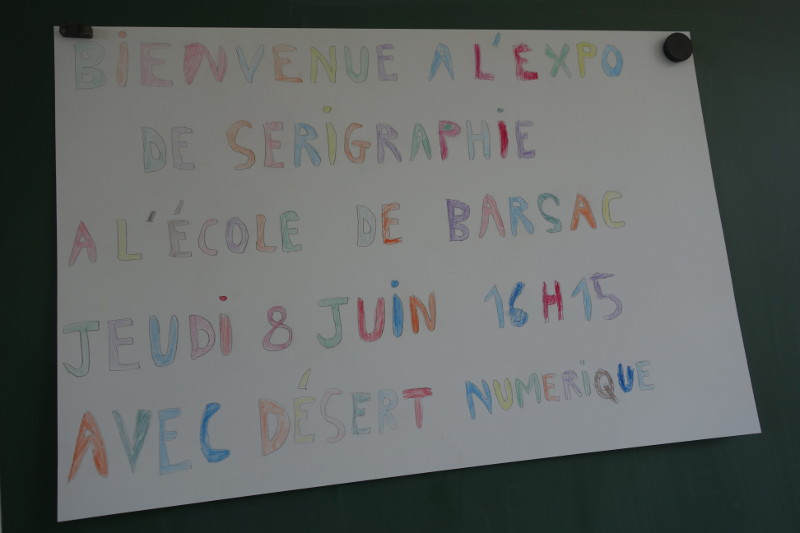 BIENVENUE A L'EXPO
DE SERIGRAPHIE
A L'ÉCOLE DE BARSAC
JEUDI 8 JUIN 16H15
AVEC DÉSERT NUMERIQUE